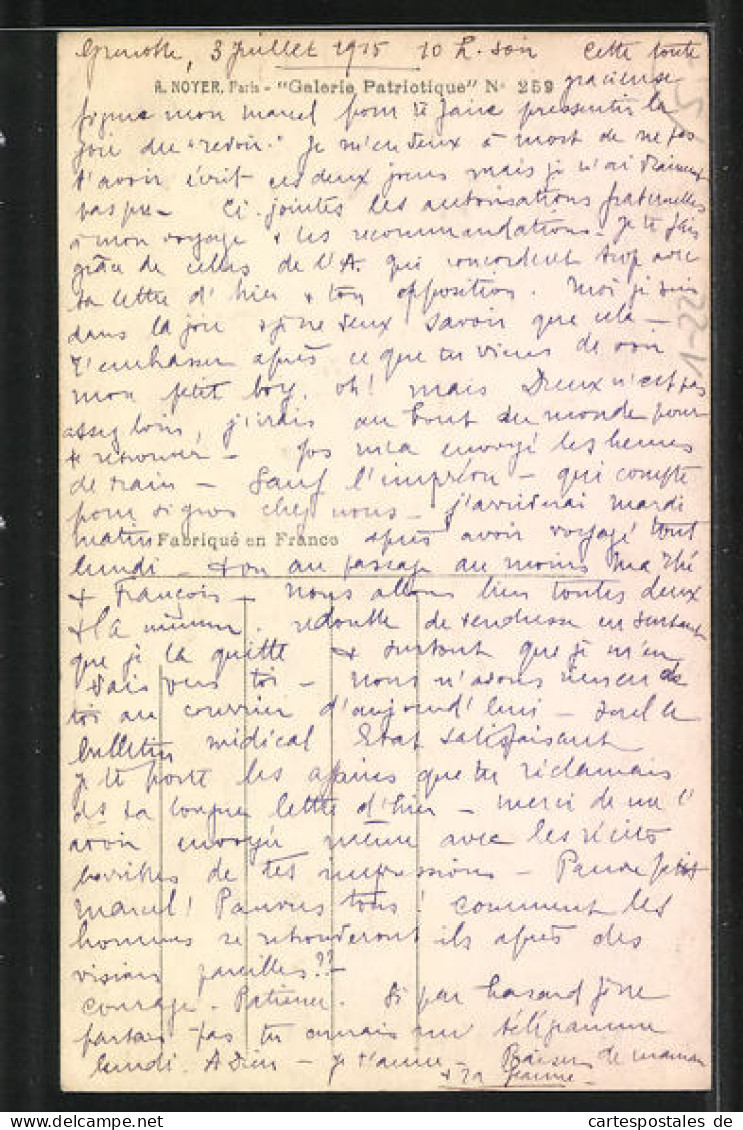 Grenoble, 3 Juillet 1915 10 h. soir Cette toute
gracieuse
A. NOYER, Paris - "Galerie Patriotique" N° 259
figure mon Marcel pour te faire pressentir la
joie du "revoir." Je m'en veux à mort de ne pas
t'avoir écrit ces deux jours mais je n'ai vraiment
pas pu - Ci-jointes les autorisations fraternelles
à mon voyage & les recommandations - Je te fais
grâce de celles de l'A. qui concordent trop avec
ta lettre d'hier & ton opposition. Moi je suis
dans la joie & je ne veux savoir que cela -
T'embrasser après ce que tu viens de voir
mon petit boy. Oh! mais Dreux n'est pas
assez loin, j'irais au bout du monde pour
te retrouver - m'a envoyé les heures
de train - Sauf l'imprévu - qui compte
pour si gros chez nous - j'arriverai mardi
matin après avoir voyagé tout
Fabriqué en France
lundi - & vu au passage au moins
& François - Nous allons bien toutes deux
redouble de tendresse en sentant
que je la quitte & surtout que je m'en
vais vers toi - Nous n'avons rien eu de
toi au courrier d'aujourd'hui - seul le
bulletin médical Etat satisfaisant
Je te porte les affaires que tu réclamais
ds ta longue lettre d'hier - merci de me l'
avoir envoyée même avec les récits
horribles de tes impressions - Pauvre petit
Marcel! Pauvres tous! Comment les
hommes se retrouveront ils après des
visions pareilles??-
Courage. Patience. Si par hasard je ne
partais pas tu aurais un télégramme
lundi. A Dieu - Je t'aime - Baisers de maman
& ta Jeanne -
1-22
cartespostales de